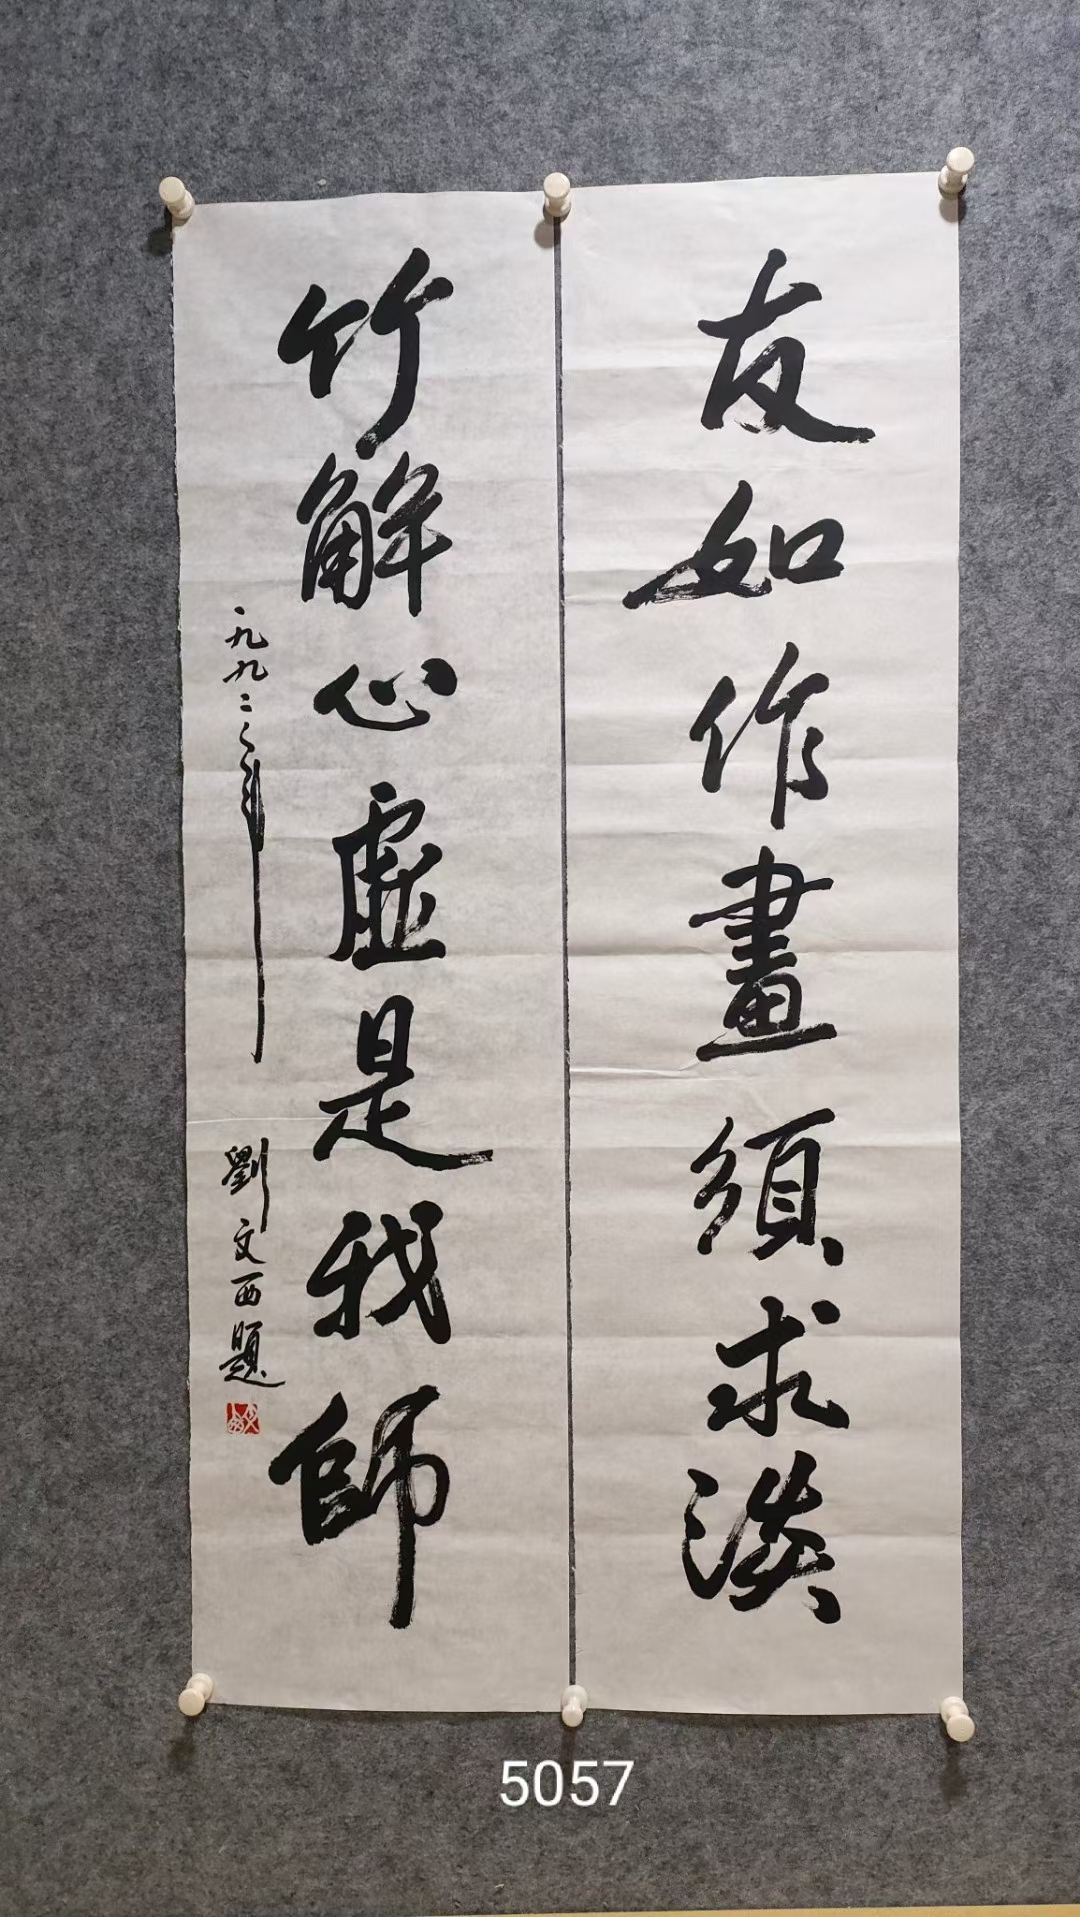 友如作畫須求淡
竹解心虛是我師
一九九二年
劉文西題
5057